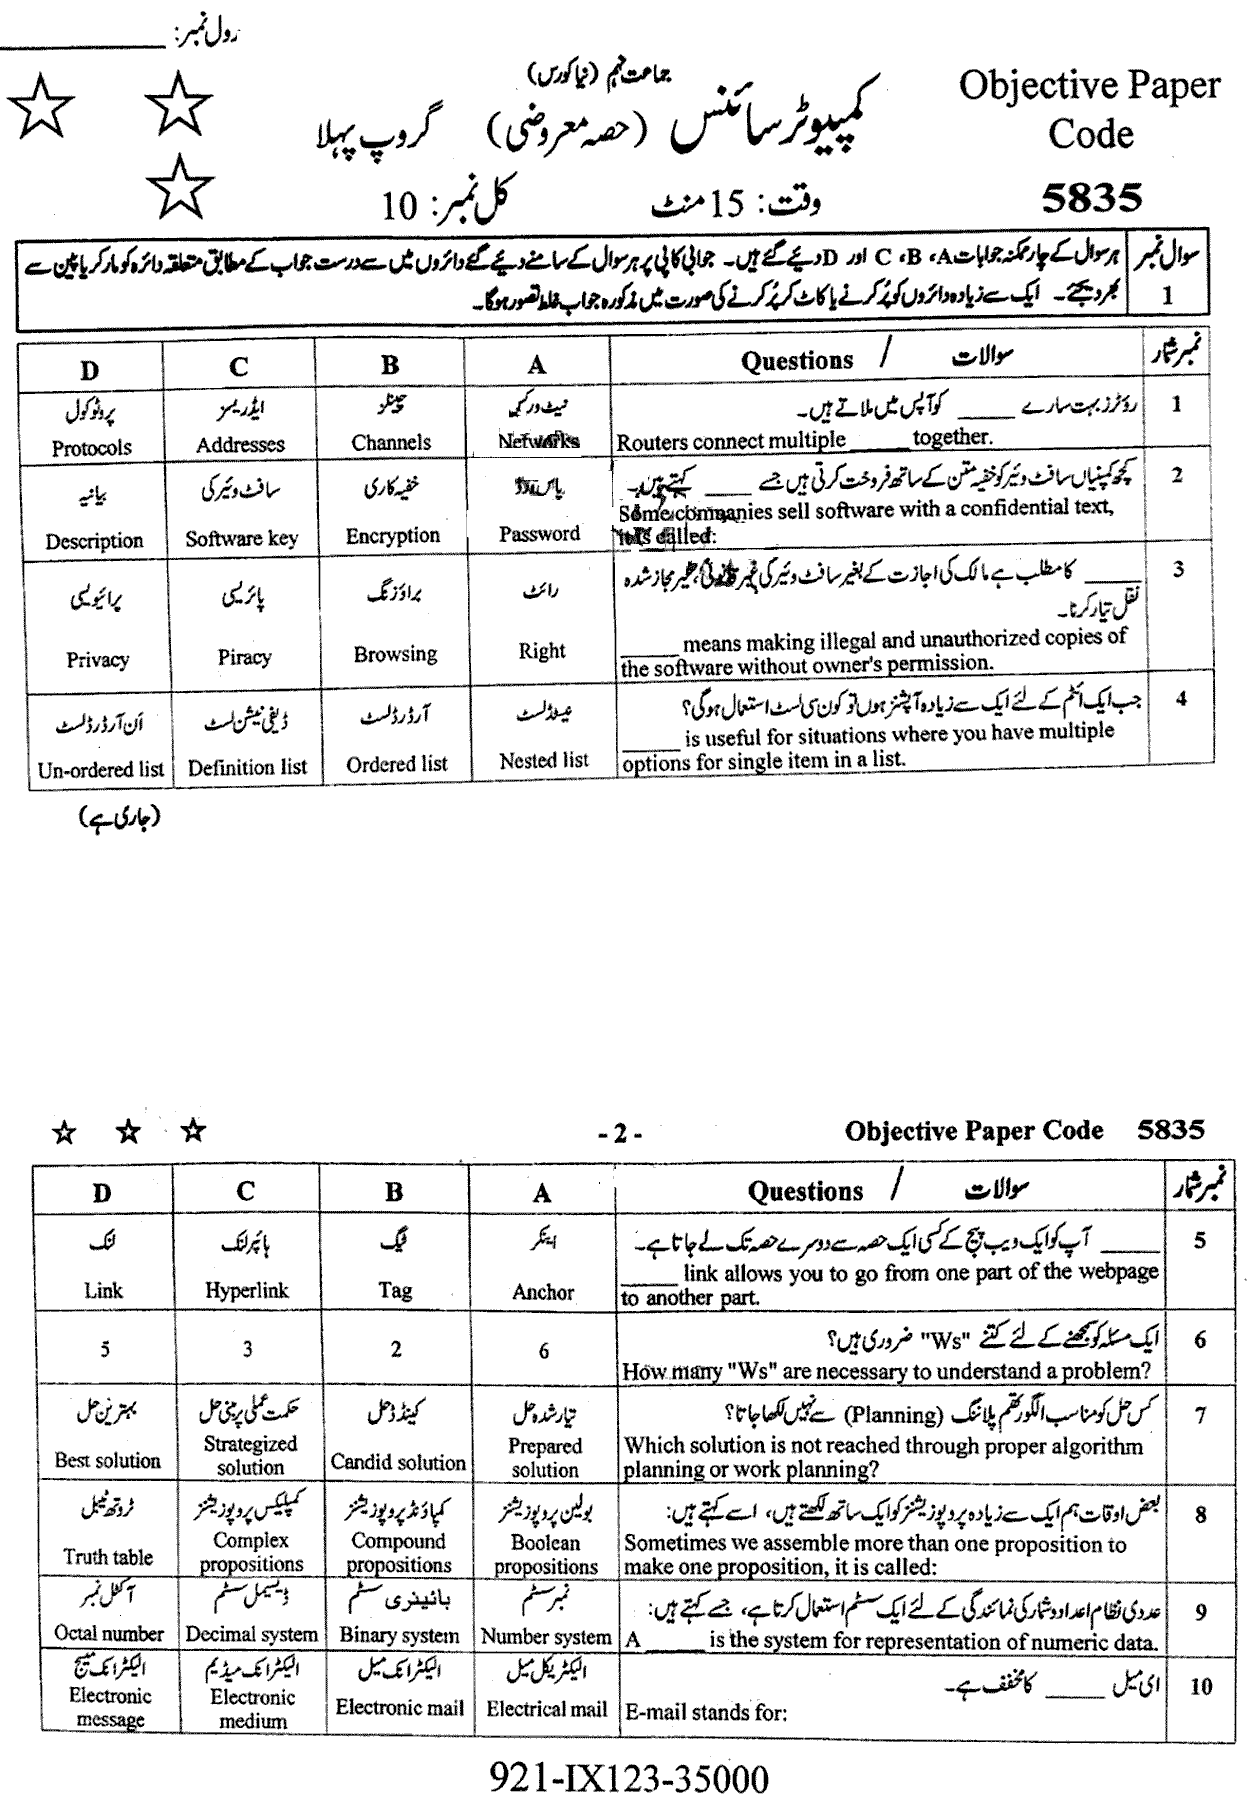 رول نمبر: ________
جماعت نہم (نیا کورس)
Objective Paper
Code
5835
کمپیوٹر سائنس (حصہ معروضی) گروپ پہلا
وقت: 15 منٹ کل نمبر: 10
سوال نمبر 1
ہر سوال کے چار ممکنہ جوابات A، B، C اور D دیئے گئے ہیں۔ جوابی کاپی پر ہر سوال کے سامنے دیئے گئے دائروں میں سے درست جواب کے مطابق متعلقہ دائرہ کو مارکر یا پین سے
بھر دیجئے۔ ایک سے زیادہ دائروں کو پُر کرنے یا کاٹ کر پُر کرنے کی صورت میں مذکورہ جواب غلط تصور ہوگا۔
نمبر شمار سوالات / Questions A B C D
1 روٹرز بہت سارے ____ کو آپس میں ملاتے ہیں۔
Routers connect multiple _____ together.
نیٹ ورکس چینلز ایڈریسز پروٹوکول
Networks Channels Addresses Protocols
2 کچھ کمپنیاں سافٹ وئیر کو خفیہ متن کے ساتھ فروخت کرتی ہیں جسے ____ کہتے ہیں۔
Some companies sell software with a confidential text,
it is called:
پاس ورڈ خفیہ کاری سافٹ وئیر کی بیانیہ
Password Encryption Software key Description
3 ____ کا مطلب ہے مالک کی اجازت کے بغیر سافٹ وئیر کی غیر قانونی، غیر مجاز شدہ
نقل تیار کرنا۔
_____ means making illegal and unauthorized copies of
the software without owner's permission.
رائٹ براؤزنگ پائریسی پرائیویسی
Right Browsing Piracy Privacy
4 جب ایک آئٹم کے لئے ایک سے زیادہ آپشنز ہوں تو کون سی لسٹ استعمال ہوگی؟
_____ is useful for situations where you have multiple
options for single item in a list.
نیسٹڈ لسٹ آرڈرڈ لسٹ ڈیفی نیشن لسٹ اَن آرڈرڈ لسٹ
Nested list Ordered list Definition list Un-ordered list
(جاری ہے)
- 2 - Objective Paper Code 5835
نمبر شمار سوالات / Questions A B C D
5 ____ آپ کو ایک ویب پیج کے کسی ایک حصہ سے دوسرے حصہ تک لے جاتا ہے۔
_____ link allows you to go from one part of the webpage
to another part.
اینکر ٹیگ ہائپر لنک لنک
Anchor Tag Hyperlink Link
6 ایک مسئلہ کو سمجھنے کے لئے کتنے "Ws" ضروری ہیں؟
How many "Ws" are necessary to understand a problem?
6 2 3 5
7 کس حل کو مناسب الگورتھم پلاننگ (Planning) سے نہیں لکھا جاتا؟
Which solution is not reached through proper algorithm
planning or work planning?
تیار شدہ حل کینڈڈ حل حکمت عملی پر مبنی حل بہترین حل
Prepared solution Candid solution Strategized solution Best solution
8 بعض اوقات ہم ایک سے زیادہ پروپوزیشنز کو ایک ساتھ لکھتے ہیں، اسے کہتے ہیں:
Sometimes we assemble more than one proposition to
make one proposition, it is called:
بولین پروپوزیشنز کمپاؤنڈ پروپوزیشنز کمپلیکس پروپوزیشنز ٹروتھ ٹیبل
Boolean propositions Compound propositions Complex propositions Truth table
9 عددی نظام اعداد و شمار کی نمائندگی کے لئے ایک سسٹم استعمال کرتا ہے، جسے کہتے ہیں:
A _____ is the system for representation of numeric data.
نمبر سسٹم بائینری سسٹم ڈیسیمل سسٹم آکٹل نمبر
Number system Binary system Decimal system Octal number
10 ای میل ____ کا مخفف ہے۔
E-mail stands for:
الیکٹریکل میل الیکٹرانک میل الیکٹرانک میڈیم الیکٹرانک میسج
Electrical mail Electronic mail Electronic medium Electronic message
921-IX123-35000